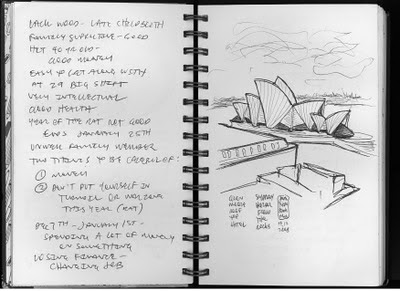 LACK WOOD - LATE CHILDBIRTH
FAMILY SUPPORTIVE - GOOD
HIT 40 YR OLD -
GOOD MONEY
EASY TO GET ALONG WITH
AT 29 BIG
VERY INTELLECTUAL
GOOD HEALTH
YEAR OF THE RAT NOT GOOD
ENDS JANUARY 25TH
FAMILY MEMBER
TWO THINGS TO BE CAREFUL OF:
① MONEY
② DON'T PUT YOURSELF IN
TURMOIL OR
THIS YEAR (RAT)
DEC 7TH - JANUARY 1ST -
SPENDING A LOT OF MONEY
ON SOMETHING
LOSING FINANCE -
CHANGING JOB
SYDNEY
HARBOR
FROM
THE
HOTEL ROCKS